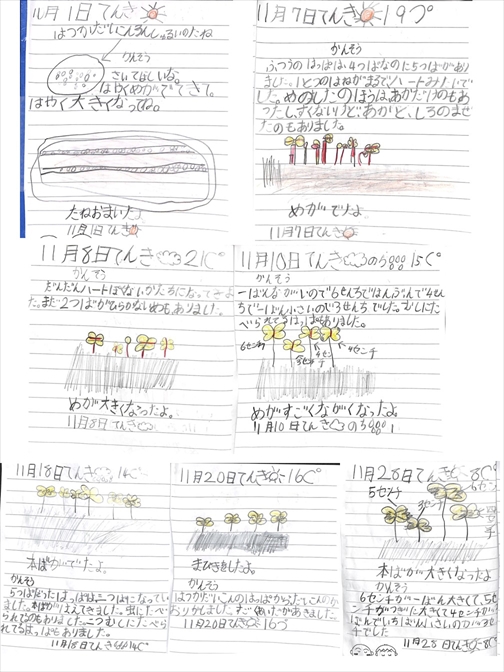 11月1日てんき
はつかだいこんろんしゅるいのたね
かんそう
さいてほしいな。
はやくめがでてきて。
はやく大きくなってね。
たねおまいたよ
11月1日てんき
11月7日てんき 19つ°
かんそう
ふつうのはっぱは4つばなのに5つばがあり
ました。1とつのはねがまるでハートみたいで
した。めのしたのほうは、あかだけのもあ
ったし、すくないけど、あかと、しろのませ
たのもありました。
めがでたよ
11月7日てんき
11月8日てんき 21C°
かんそう
だんだんハートぽくないかたちになってきま
した。まだ2つばがひらかないめつもありました。
めが大きくなったよ。
11月8日てんき
11月10日てんきのち 15C°
かんそう
一ばんながいので6せんちではんぶんで4せん
ちで一ばん小さいので3せんちでした。むしにた
べられてるはっぱもありました。
6センチ
4センチ
3センチ
4センチ
めがすごくながくなったよ。
11月10日てんきのち
11月18日てんき 14C°
本ばがでたよ。
かんそう
5つばだったはっぱは二つばになってい
ました。本ばがはえてきました。虫にたべ
られてるはっぱもありました。
11月18日てんき14C°
11月20日てんき 16C°
まびきをしたよ。
かんそう
11月20日てんき 16つ
11月28日てんき 8C°
5センチ
3センチ
6センチ
本ばが大きくなったよ
かんそう
6センチが一ばん大きくて、5セ
ンチがつぎに大きくて4センチが
3セ
ンチでした
11月28日てんき 8C°